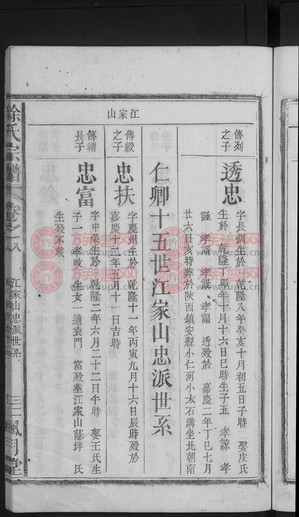 江家山
傳列之子
透忠
字長釧生於乾隆八年癸亥十月初五日子時 娶皮氏
生於乾隆 年 十月十六日巳時生子五 孝諒 孝
謹 孝 孝 孝謟 透殁於 嘉慶二年丁巳七月
廿六日亥時葬於陝西鎮安縣小仁河小木石溝坐北朝南
仁卿十五世江家山忠派世系
傳綬之子
忠扶
字慶州生於乾隆十一年丙寅九月十六日辰時殁於
嘉慶十二年五月十一日吉時
傳緒長子
忠富
字申榮生於乾隆二年六月二十二日午時 娶王氏生
子一 孝 生女一適袁門 富殁葬江家山蔴坪 氏
生殁不載
徐氏宗譜
卷之八
江家山忠派世系
三
楓月堂